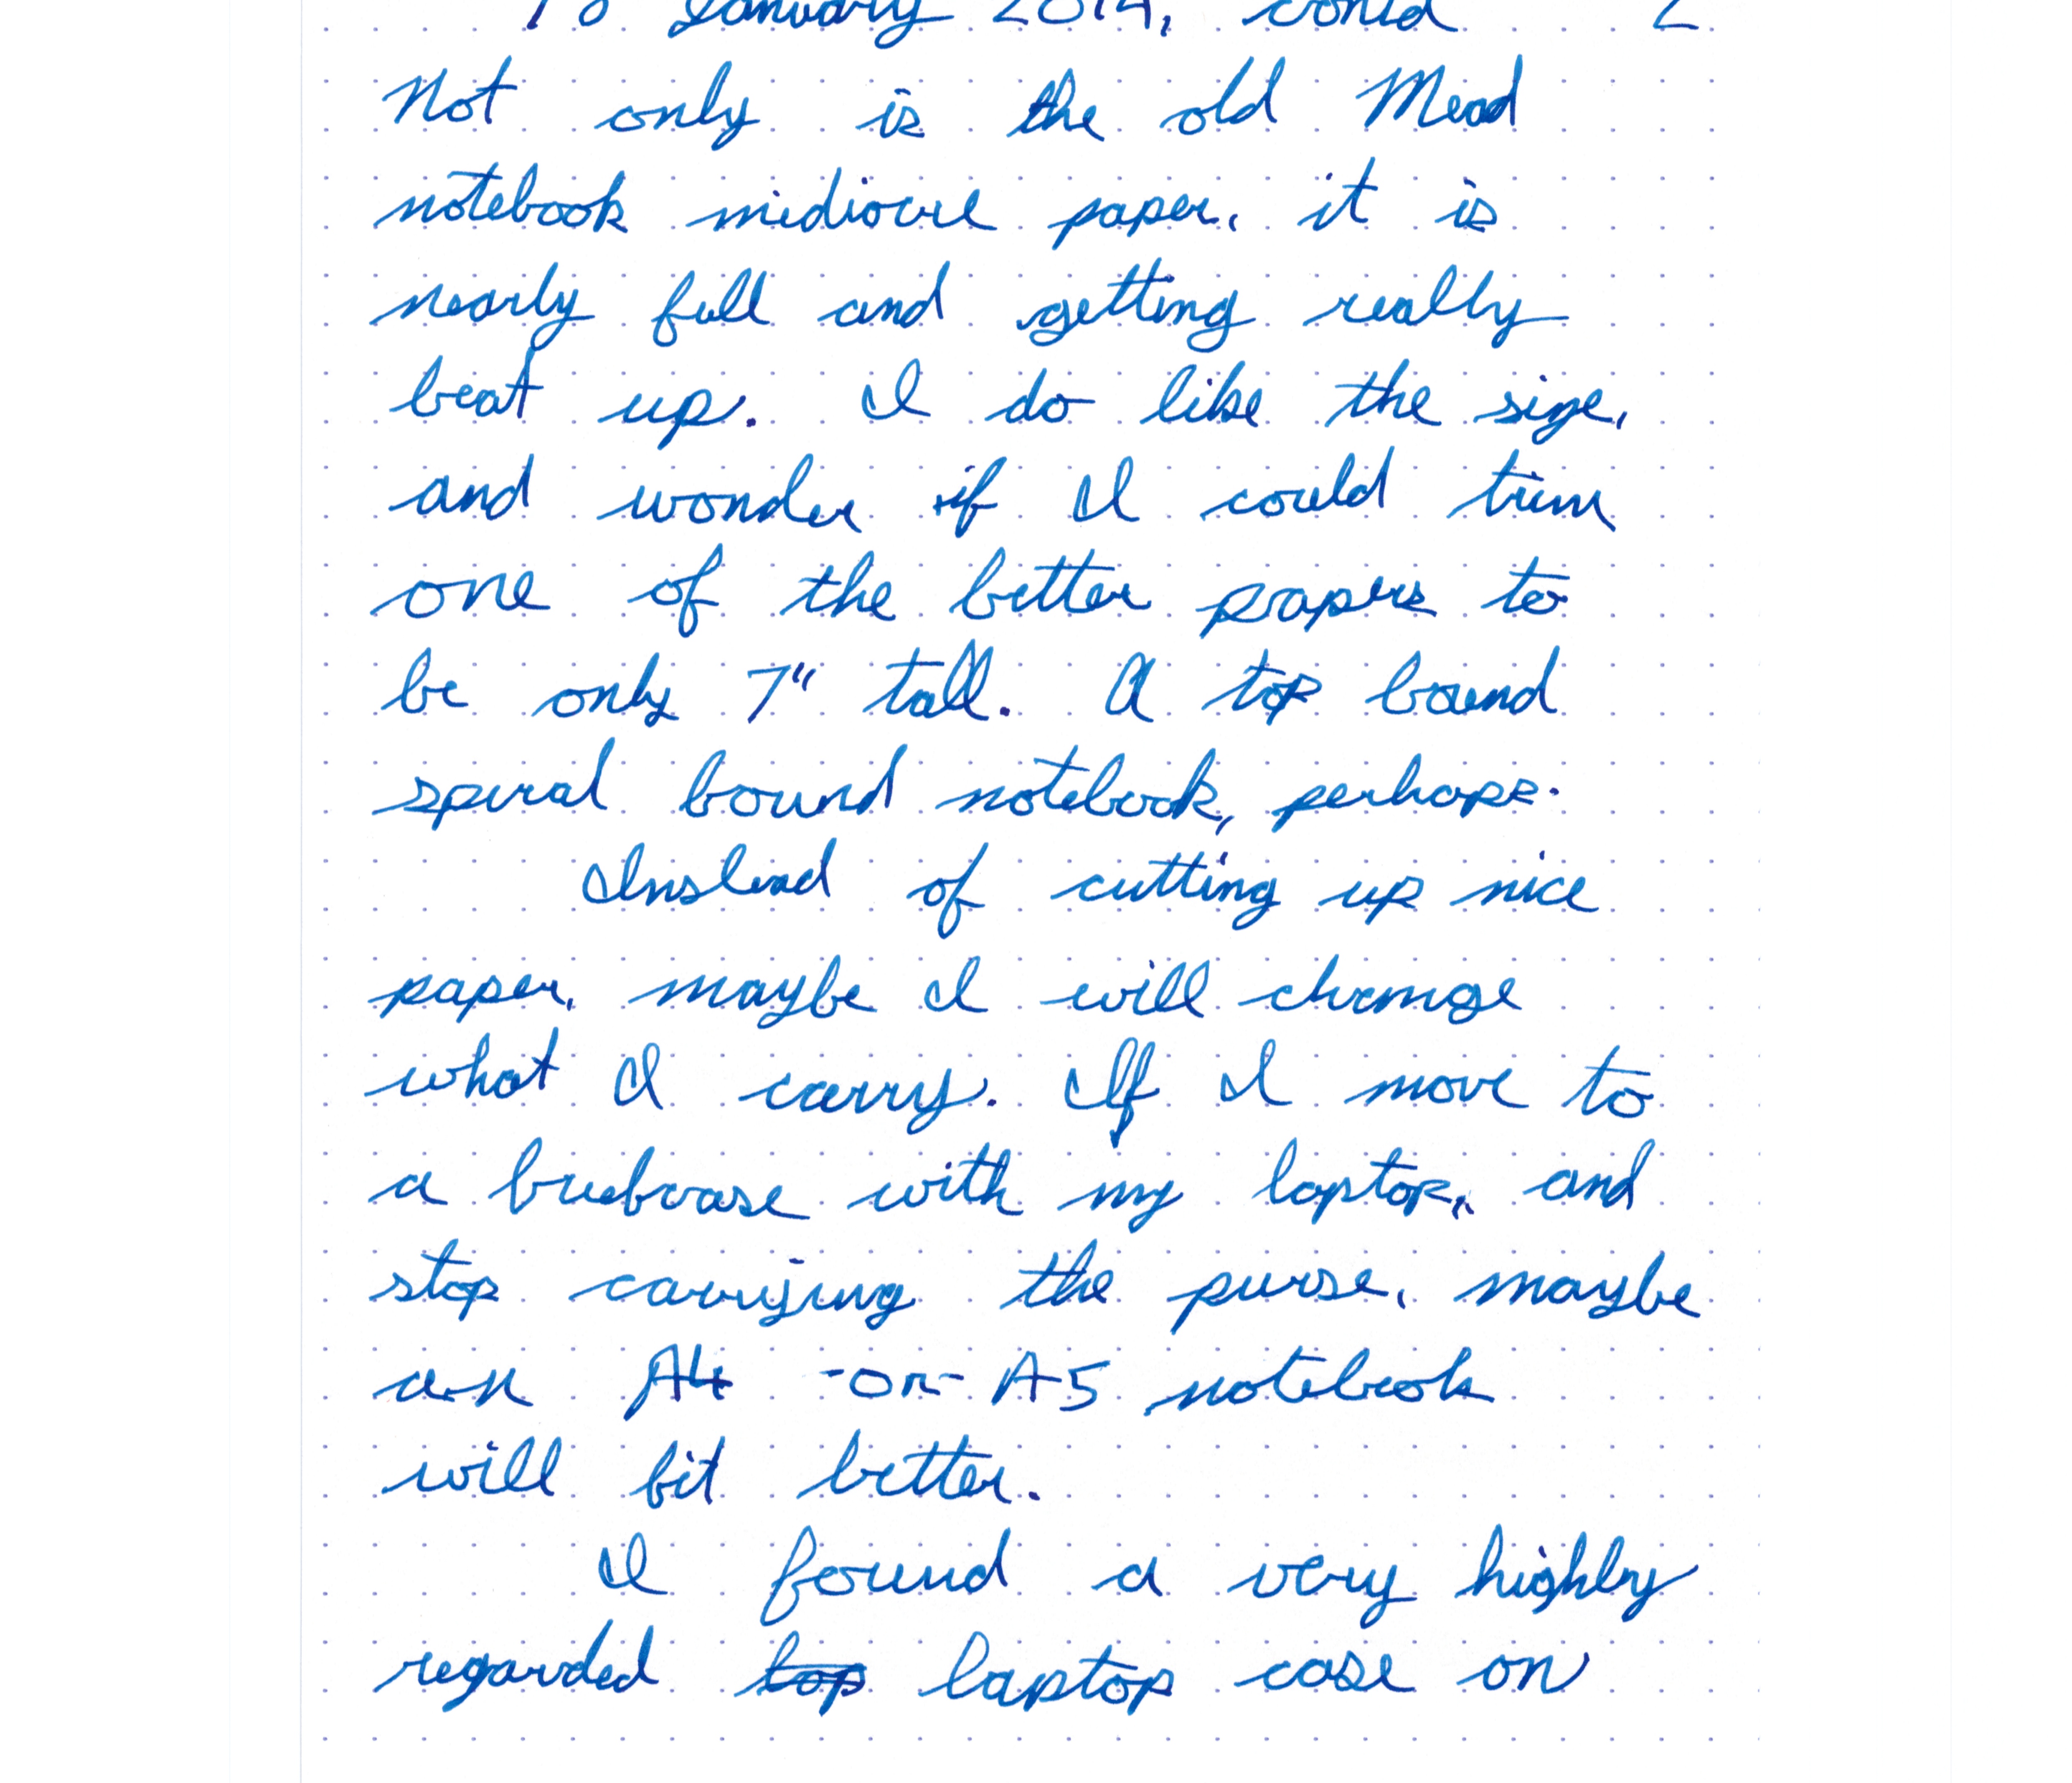 January 2014, cont'd 2
Not only is the old Mead
notebook mediocre paper, it is
nearly full and getting really
beat up. I do like the size,
and wonder if I could trim
one of the better papers to
be only 7" tall. A top bound
spiral bound notebook, perhaps.
Instead of cutting up nice
paper, maybe I will change
what I carry. If I move to
a briefcase with my laptop, and
stop carrying the purse, maybe
an A4 -or- A5 notebook
will fit better.
I found a very highly
regarded top laptop case on